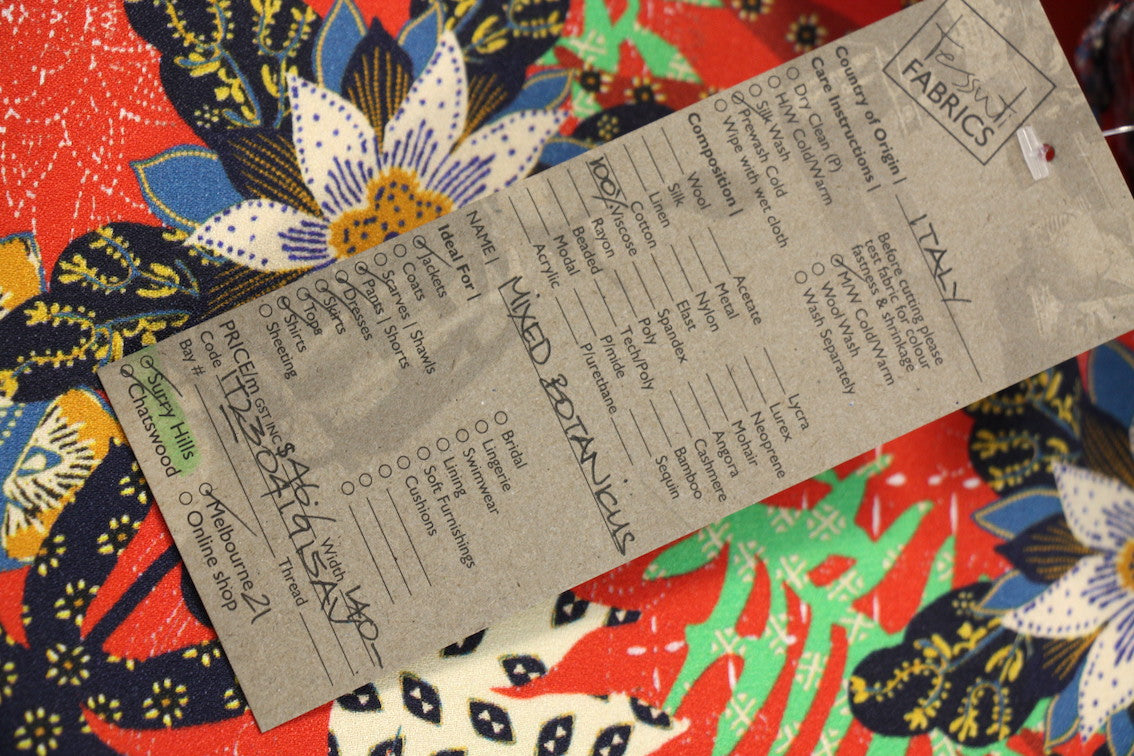 tessuti
FABRICS
Country of Origin | ITALY
Care Instructions |
Dry Clean (P)
H/W Cold/Warm
Silk Wash
Prewash Cold
Wipe with wet cloth
Before cutting please
test fabric for colour
fastness & shrinkage
M/W Cold/Warm
Wool Wash
Wash Separately
Composition |
Wool
Silk
Linen
Cotton
100% Viscose
Rayon
Beaded
Modal
Acrylic
Acetate
Metal
Nylon
Elast
Spandex
Poly
Tech/Poly
P/mide
P/urethane
Lycra
Lurex
Neoprene
Mohair
Angora
Cashmere
Bamboo
Sequin
NAME | MIXED BOTANICUS
Ideal For |
Jackets
Coats
Scarves | Shawls
Pants | Shorts
Dresses
Skirts
Tops
Shirts
Sheeting
Bridal
Lingerie
Swimwear
Lining
Soft Furnishings
Cushions
PRICE/m GST INC $ Width 140
Code
Bay # Thread
Surry Hills
Chatswood
Melbourne 21
Online shop